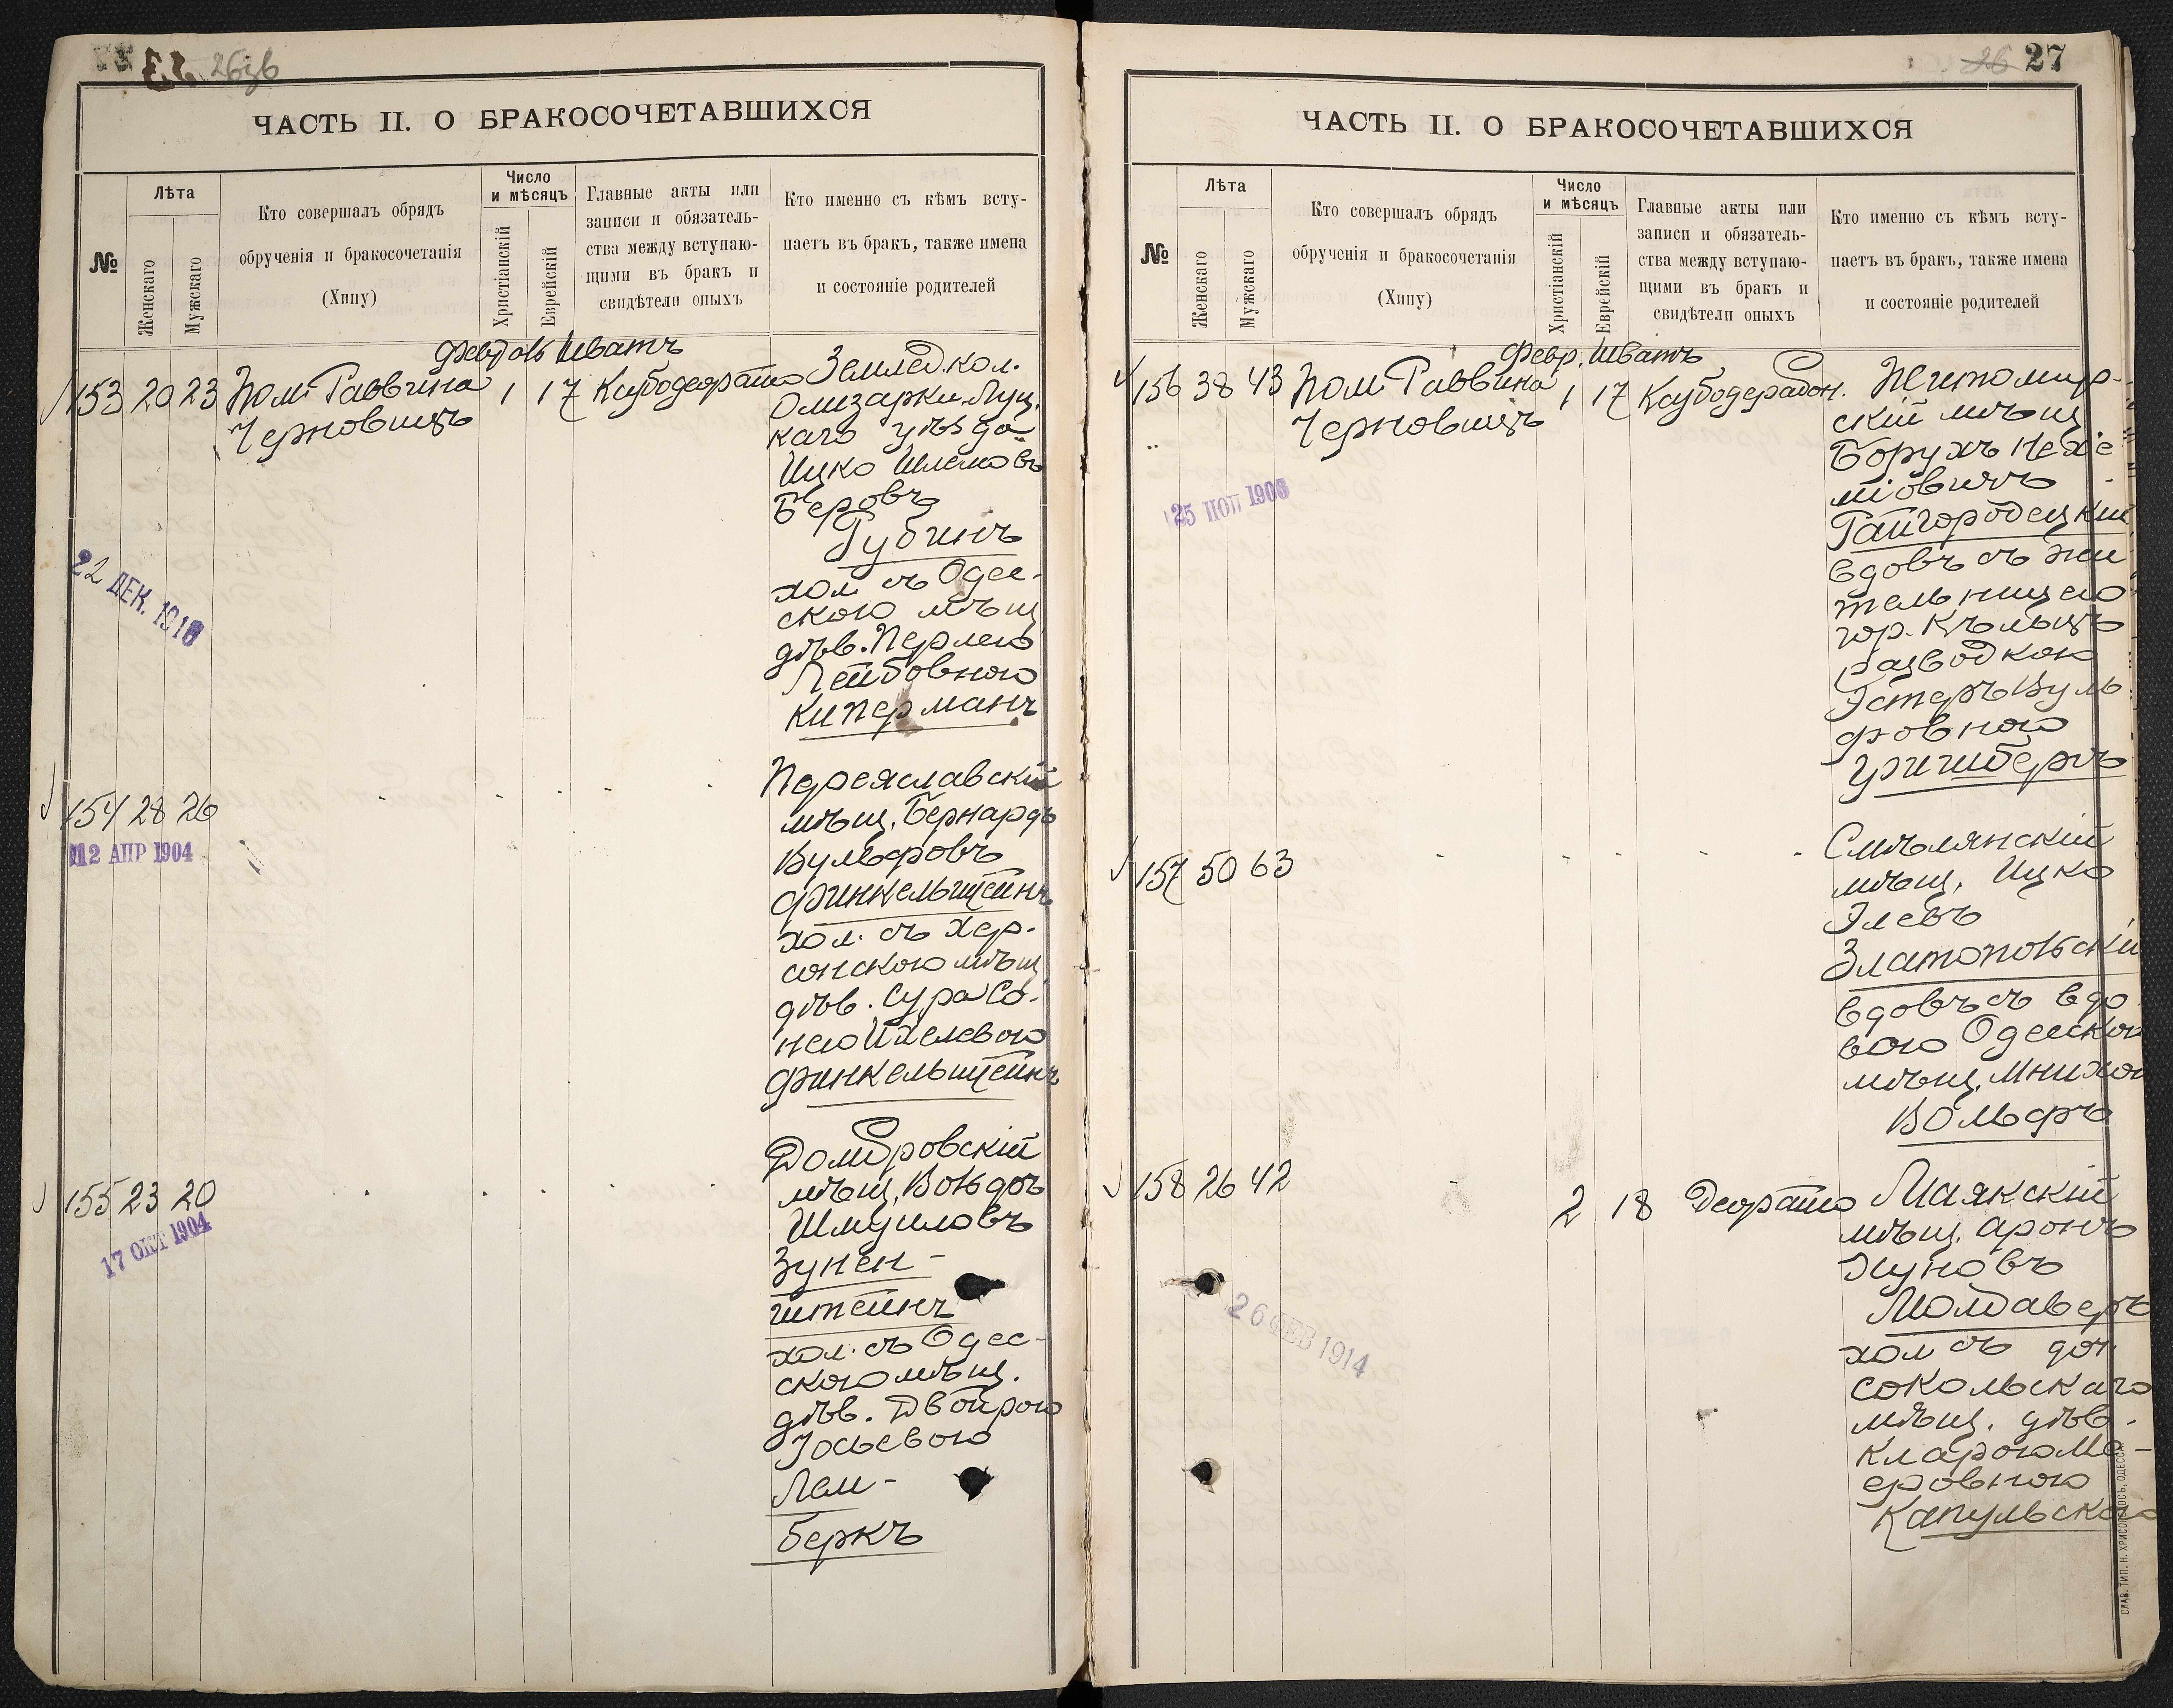 26зв
ЧАСТЬ II. О БРАКОСОЧЕТАВШИХСЯ
№
Лѣта
Женскаго
Мужскаго
Кто совершалъ обрядъ
обрученія и бракосочетанія
(Хипу)
Число
и мѣсяцъ
Христіанскій
Еврейскій
Главные акты или
записи и обязатель-
ства между вступаю-
щими въ бракъ и
свидѣтели оныхъ
Кто именно съ кѣмъ всту-
паетъ въ бракъ, также имена
и состояніе родителей
Шватъ
153 20 23 Пом. Раввина 1 17
Черновицъ
Землед. кол.
Олизарки Луц.
каго уѣзда
Ицко Шлемовъ
Беровъ
Губинъ
хол. съ Одес-
скою мѣщ
дѣв. Перлею
Лейбовною
Киперманъ
22 ДЕК. 1916
154 28 26
12 АПР 1904
Переяславскій
мѣщ. Бернардъ
Вульфовъ
Финкельштейнъ
хол. съ Хер-
сонскою мѣщ
дѣв. Сура Со-
нею Ихелевою
Финкельштейнъ
155 23 20
17 ОКТ 1904
Домбровскій
мѣщ. Вольфъ
Шмуиловъ
Зунен-
штейнъ
хол. съ Одес-
скою мѣщ.
дѣв. Двойрою
Іосьевою
Лем-
беркъ
26 27
ЧАСТЬ II. О БРАКОСОЧЕТАВШИХСЯ
№
Лѣта
Женскаго
Мужскаго
Кто совершалъ обрядъ
обрученія и бракосочетанія
(Хипу)
Число
и мѣсяцъ
Христіанскій
Еврейскій
Главные акты или
записи и обязатель-
ства между вступаю-
щими въ бракъ и
свидѣтели оныхъ
Кто именно съ кѣмъ всту-
паетъ въ бракъ, также имена
и состояніе родителей
Февр. Шватъ
156 38 43 Пом. Раввина 1 17
Черновицъ
25 1903
Житомир-
скій мѣщ
Борухъ Нехе
міовичъ
Гайгородецкій
вдовъ съ жи
тельницею
гор. Кѣльцъ
разводкою
Эстеръ Вуль
фовною
Гринбергъ
157 50 63
Смѣлянскій
мѣщ. Ицко
Элевъ
Златопольскій
вдовъ съ вдо
вою Одесскою
мѣщ. Мнихою
Вольфъ
158 26 42 2 18
26 ФЕВ 1914
Маякскій
мѣщ. Аронъ
Нуновъ
Молдаверъ
хол съ доч.
сокольскаго
мѣщ. дѣв.
Кларою Ме-
еровною
Капульскою
СЛАВ. ТИП. Н. ХРИСОГЕЛОСЪ, ОДЕССА